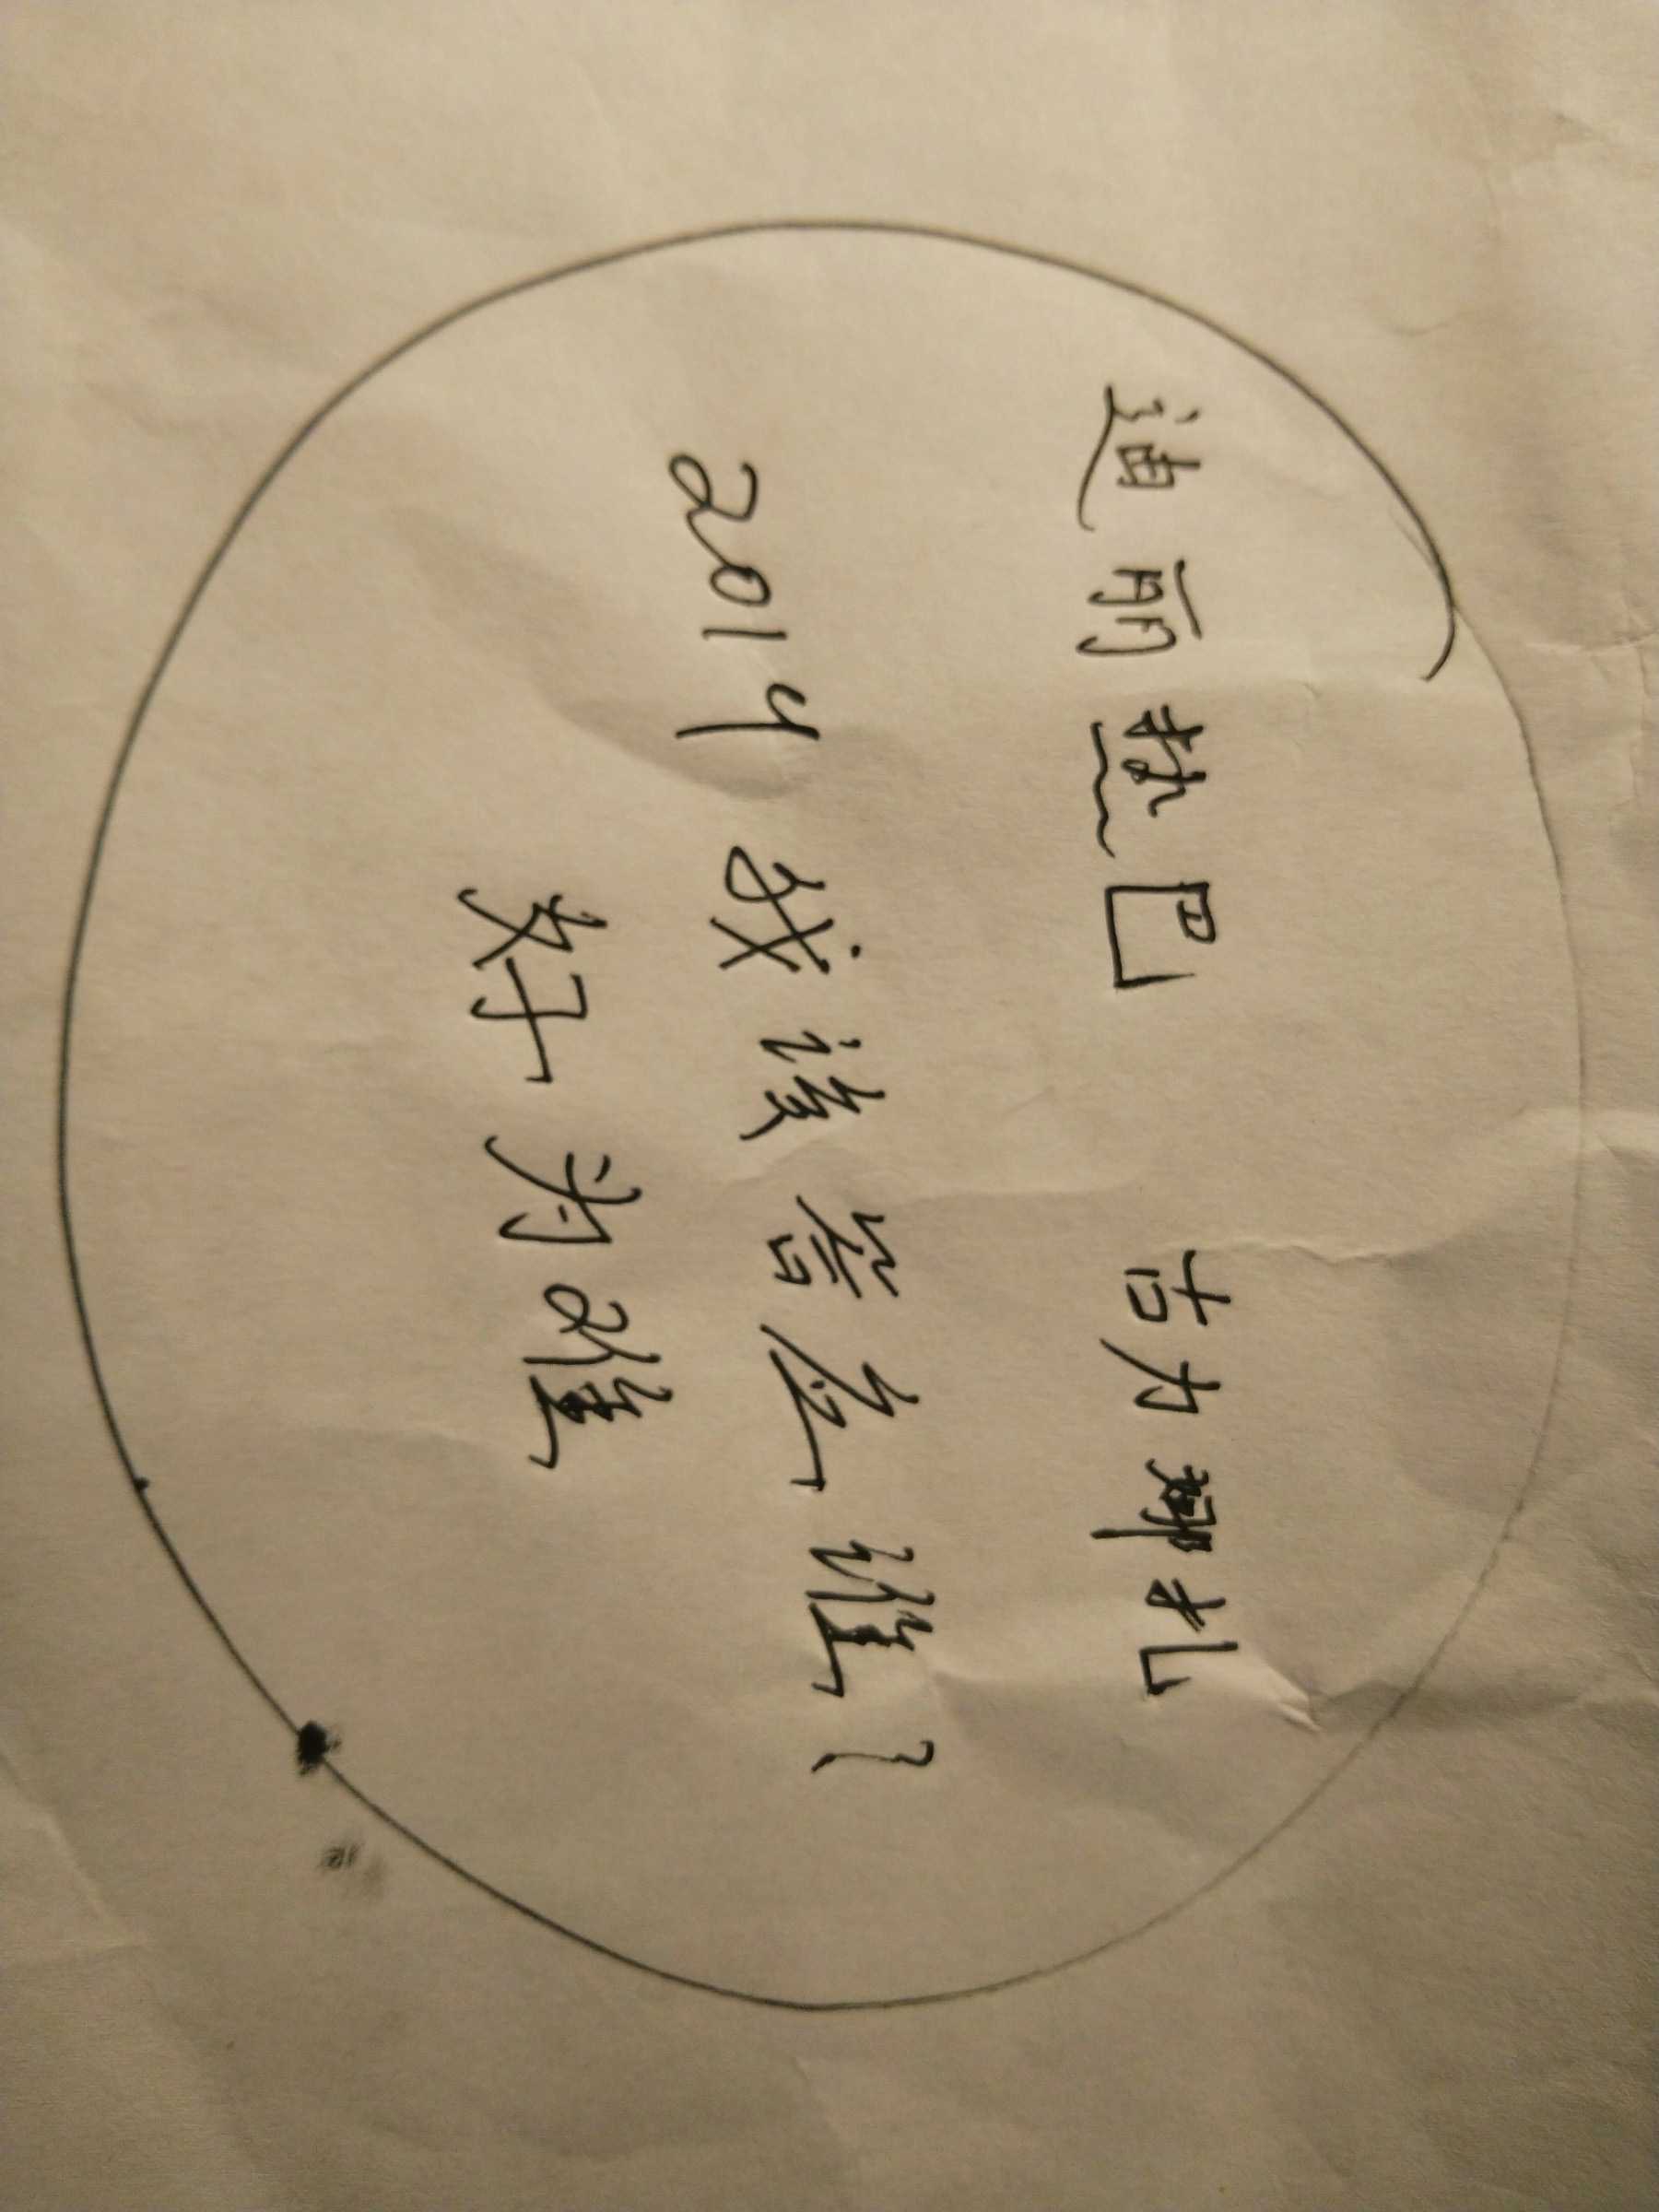 迪丽热巴 古力娜扎
2014 我该答应谁?
好为难